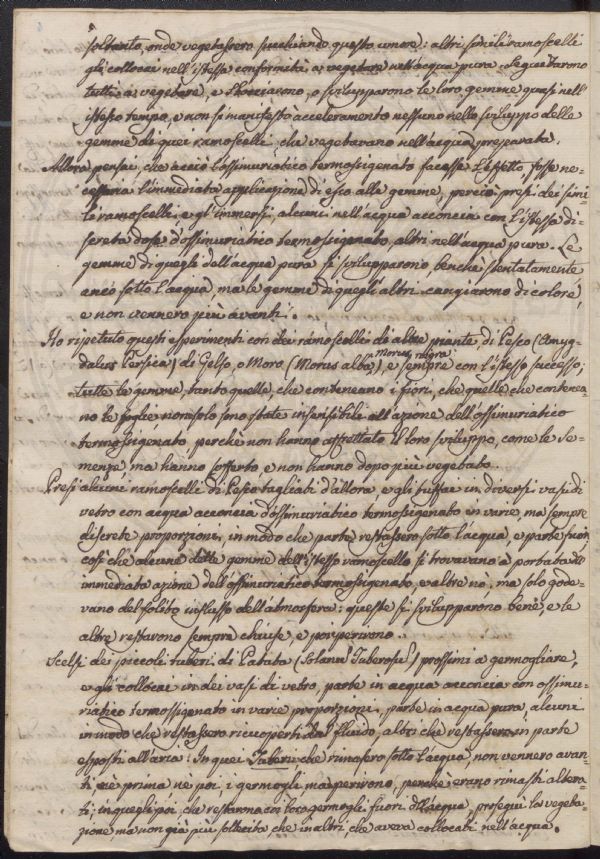 soltanto, onde vegetassero succhiando questo umore: altri simili ramoscelli
gli collocai nell'istessa conformità a vegetare nell'acqua pura. Seguitarono
tutti a vegetare, e sbocciarono, o svilupparono le loro gemme quasi nell'
istesso tempo, e non si manifestò acceleramento nessuno nello sviluppo delle
gemme di quei ramoscelli, che vegetavano nell'acqua preparata.
Allora pensai, che acciò l'ossimuriatico termossigenato facesse l'effetto, fosse ne-
cessaria l'immediata applicazione di esso alle gemme, perciò presi dei simi-
li ramoscelli, e gl'immersi, alcuni nell'acqua acconcia con l'istessa di-
screta dose d'ossimuriatico termossigenato, altri nell'acqua pura. Le
gemme di quegli dell'acqua pura si svilupparono, benchè stentatamente
anco sotto l'acqua, ma le gemme di quegl'altri cangiarono di colore,
e non vennero più avanti.
Ho ripetuto questi esperimenti con dei ramoscelli di altre piante, di Pesco (Amyg-
dalus Persica) di Gelso, o Moro (Morus alba, Morus nigra), e sempre con l'istesso successo;
tutte le gemme, tanto quelle, che contenevano i fiori, che quelle che conteneva-
no le foglie non solo sono state insensibili all'azione dell'ossimuriatico
termossigenato, perchè non hanno affrettato il loro sviluppo, come le se-
menze, ma hanno sofferto e non hanno dopo più vegetato.
Presi alcuni ramoscelli di Pesco tagliati d'allora, e gli tuffai in diversi vasi di
vetro con acqua acconcia d'ossimuriatico termossigenato in varie, ma sempre
discrete proporzioni, in modo che parte restassero sotto l'acqua, e parte fuori
così che alcune delle gemme dell'istesso ramoscello si trovavano a portata
immediata azione dell'ossimuriatico termossigenato, e altre nò, ma solo gode-
vano del solito influsso dell'atmosfera: queste si svilupparono bene, e le
altre restarono sempre chiuse, e poi perirono.
Scelsi dei piccoli tuberi di Patata (Solanu Tuberosu) prossimi a germogliare,
e gli collocai in dei vasi di vetro, parte in acqua acconcia con ossimu-
riatico termossigenato in varie proporzioni, parte in acqua pura, alcuni
in modo che restassero ricoperti dal fluido, altri che restassero in parte
esposti all'aria: In quei Tuberi che rimasero sotto l'acqua, non vennero avan-
ti, nè prima nè poi, i germogli, ma perirono, perchè erano rimasti altera-
ti; in quegli poi, che restarono coi loro germogli fuori dell'acqua, proseguì la vegeta-
zione ma non già più sollecita che in altri, che aveva collocati nell'acqua.